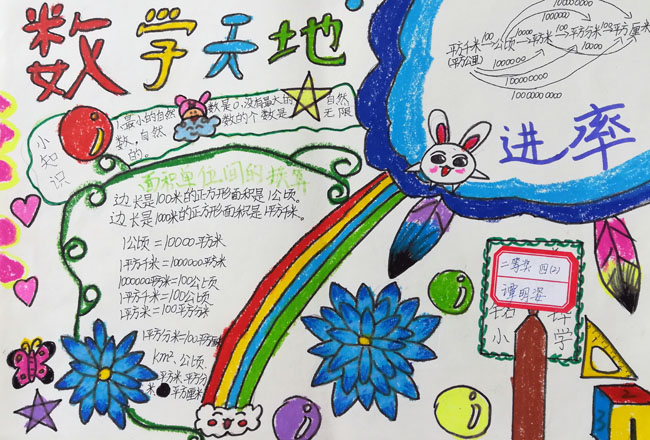 数学天地
小知识
1.最小的自然数是0,没有最大的
数,自然数的个数是
自然
无限
的。
面积单位间的换算
边长是100米的正方形面积是1公顷。
边长是1000米的正方形面积是1平方千米。
1公顷=10000平方米
1平方千米=1000000平方米
1000000平方米=100公顷
1平方千米=100公顷
1平方米=100平方分米
1平方分米=100平方厘米
km²、公顷、
平方米、平方分
米、平方厘米
100000000
1000000
平方千米 100 公顷 10000 平方米 100 平方分米 100 平方厘米
(平方公里)
1000000
10000
100000000
10000000000
进率
二等奖 四(2)
谭明姿
小
学